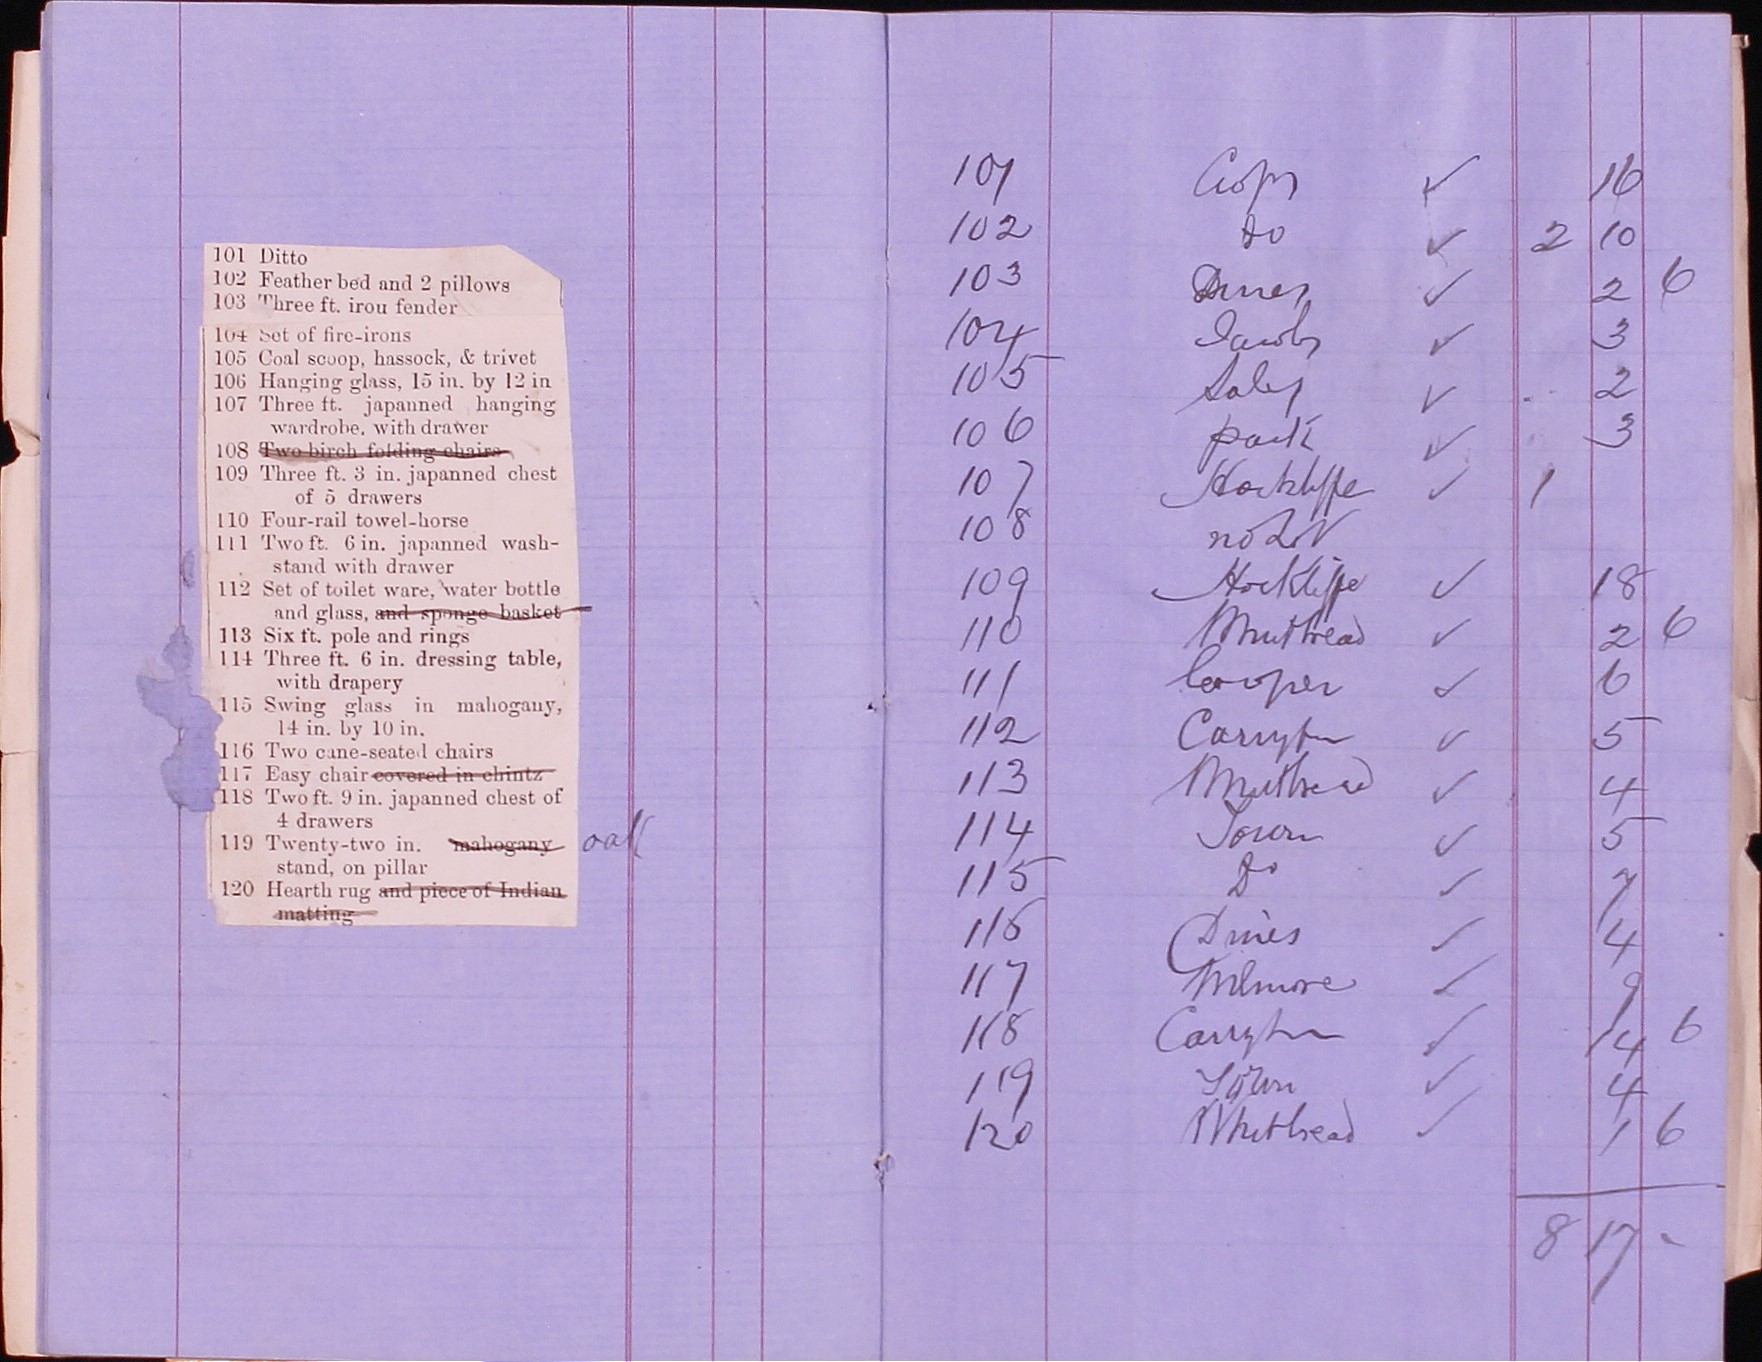 101 Ditto
102 Feather bed and 2 pillows
103 Three ft. iron fender
104 Set of fire-irons
105 Coal scoop, hassock, & trivet
106 Hanging glass, 15 in. by 12 in
107 Three ft. japanned hanging
wardrobe, with drawer
108 Two birch folding chairs
109 Three ft. 3 in. japanned chest
of 5 drawers
110 Four-rail towel-horse
111 Two ft. 6 in. japanned wash-
stand with drawer
112 Set of toilet ware, water bottle
and glass, and sponge basket
113 Six ft. pole and rings
114 Three ft. 6 in. dressing table,
with drapery
115 Swing glass in mahogany,
14 in. by 10 in.
116 Two cane-seated chairs
117 Easy chair covered in chintz
118 Two ft. 9 in. japanned chest of
4 drawers
119 Twenty-two in. mahogany oak
stand, on pillar
120 Hearth rug and piece of Indian
matting
101 ✓ 16
102 Do ✓ 2 10
103 Dines ✓ 2 6
104 Jacobs ✓ 3
105 ✓ 2
106 pack ✓ 3
107 Hockliffe ✓ 1
108 no Lot
109 Hockliffe ✓ 18
110 Whitbread ✓ 2 6
111 Cooper ✓ 6
112 ✓ 5
113 Whitbread ✓ 4
114 Town ✓ 5
115 Do ✓ 7
116 Dines ✓ 4
117 Wilmore ✓ 9
118 ✓ 14 6
119 Town ✓ 4
120 Whitbread ✓ 1 6
8 17 -